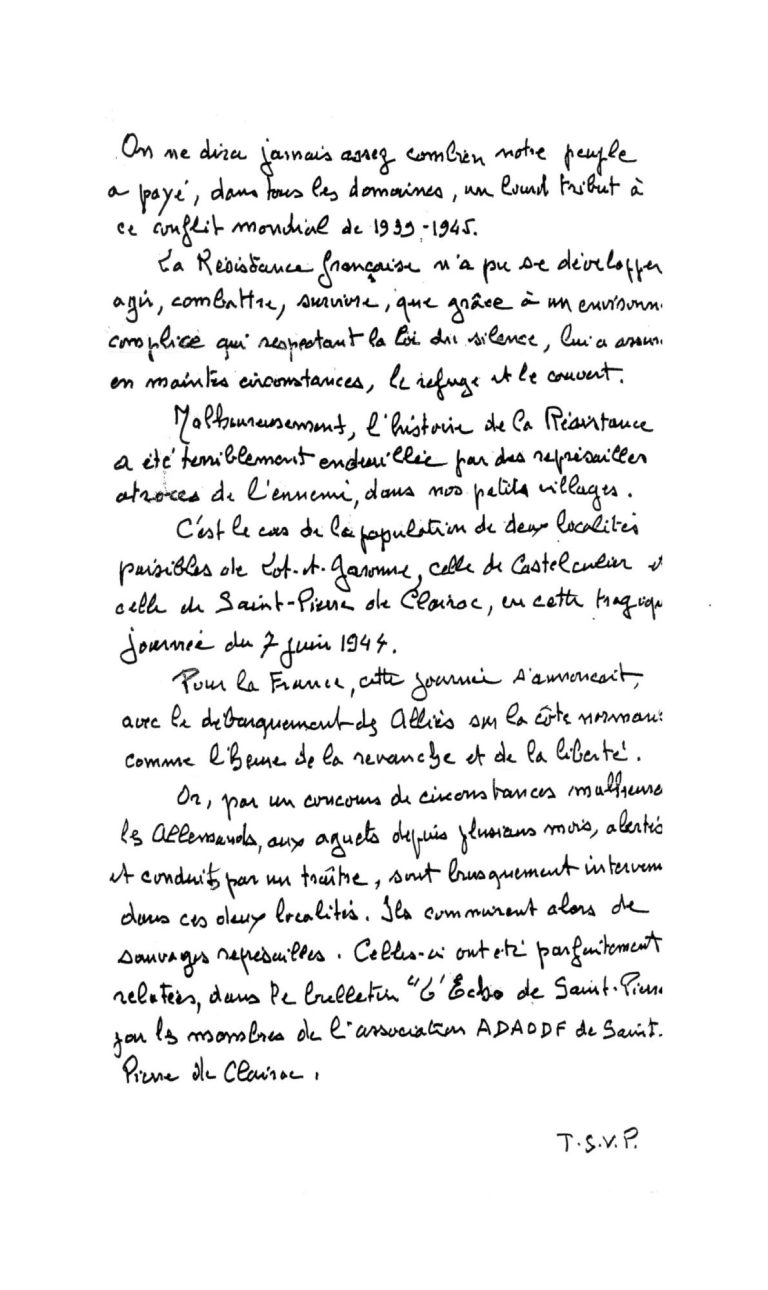 On ne dira jamais assez combien notre peuple
a payé, dans tous les domaines, un lourd tribut à
ce conflit mondial de 1939-1945.
La Résistance française n'a pu se développer
agir, combattre, survivre, que grâce à un environn
complice qui respectant la loi du silence, lui a assur
en maintes circonstances, le refuge et le couvert.
Malheureusement, l'histoire de la Résistance
a été terriblement endeuillée par des représailles
atroces de l'ennemi, dans nos petits villages.
C'est le cas de la population de deux localités
paisibles de Lot-et-Garonne, celle de Castelculier et
celle de Saint-Pierre de Clairac, en cette tragiqu
journée du 7 juin 1944.
Pour la France, cette journée s'annonçait,
avec le débarquement des Alliés sur la côte norman
comme l'heure de la revanche et de la liberté.
Or, par un concours de circonstances malheure
les Allemands, aux aguets depuis plusieurs mois, alertés
et conduits par un traître, sont brusquement interven
dans ces deux localités. Ils commirent alors de
sauvages représailles. Celles-ci ont été parfaitement
relatées, dans le bulletin "L'Echo de Saint-Pierre
par les membres de l'association ADAODF de Saint-
Pierre de Clairac.
T.S.V.P.